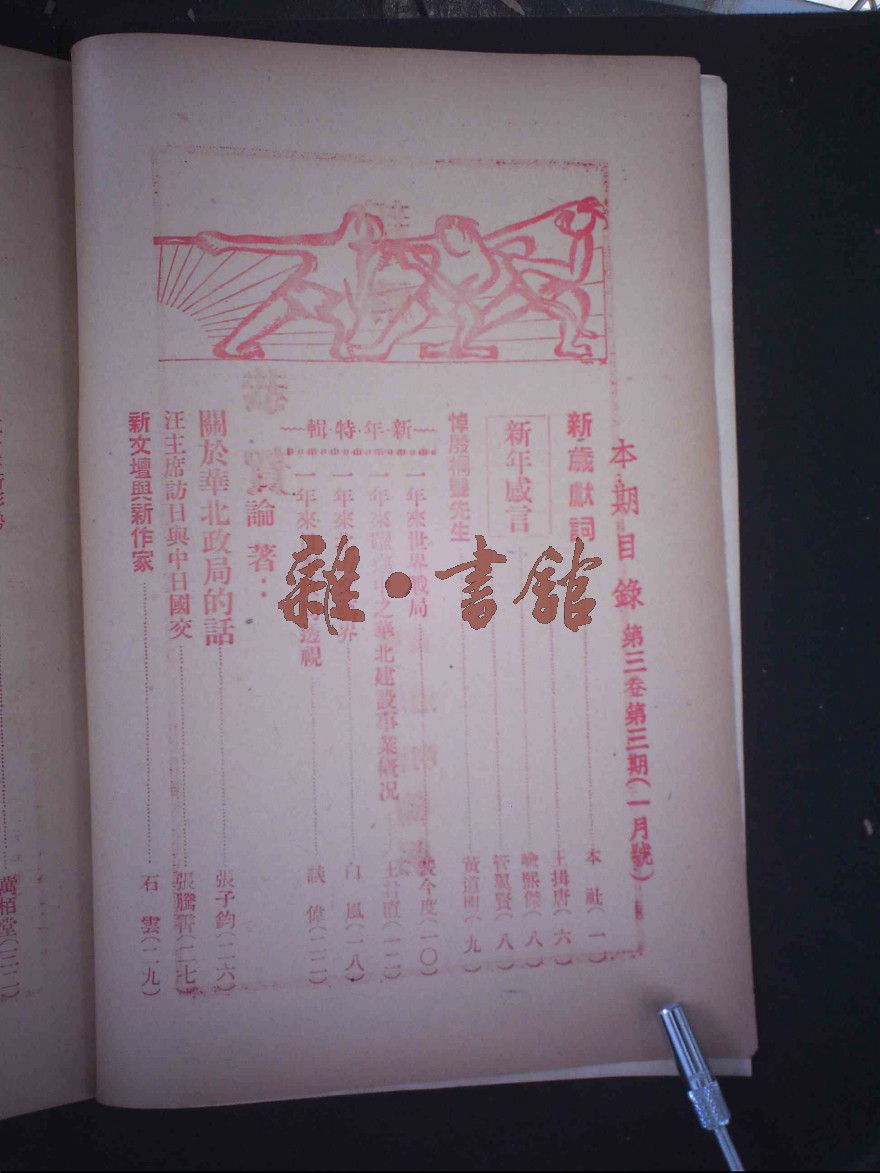 本期目錄 第三卷第三期(一月號)
新歲獻詞 本社(一)
新年感言 王揖唐(六)
喻熙傑(八)
管翼賢(八)
悼殷桐聲先生 黃道明(九)
新·年·特·輯
一年來世界戰局 今度(一〇)
一年來 之華北建設事業概況 王 (一二)
一年來 界 白風(一八)
一年來 透視 談偉(二二)
論著:
關於華北政局的話 張子鈞(二六)
汪主席訪日與中日國交 張騰霄(二七)
新文壇與新作家 石雲(二九)
萬栢堂(三二)
雜·書舘